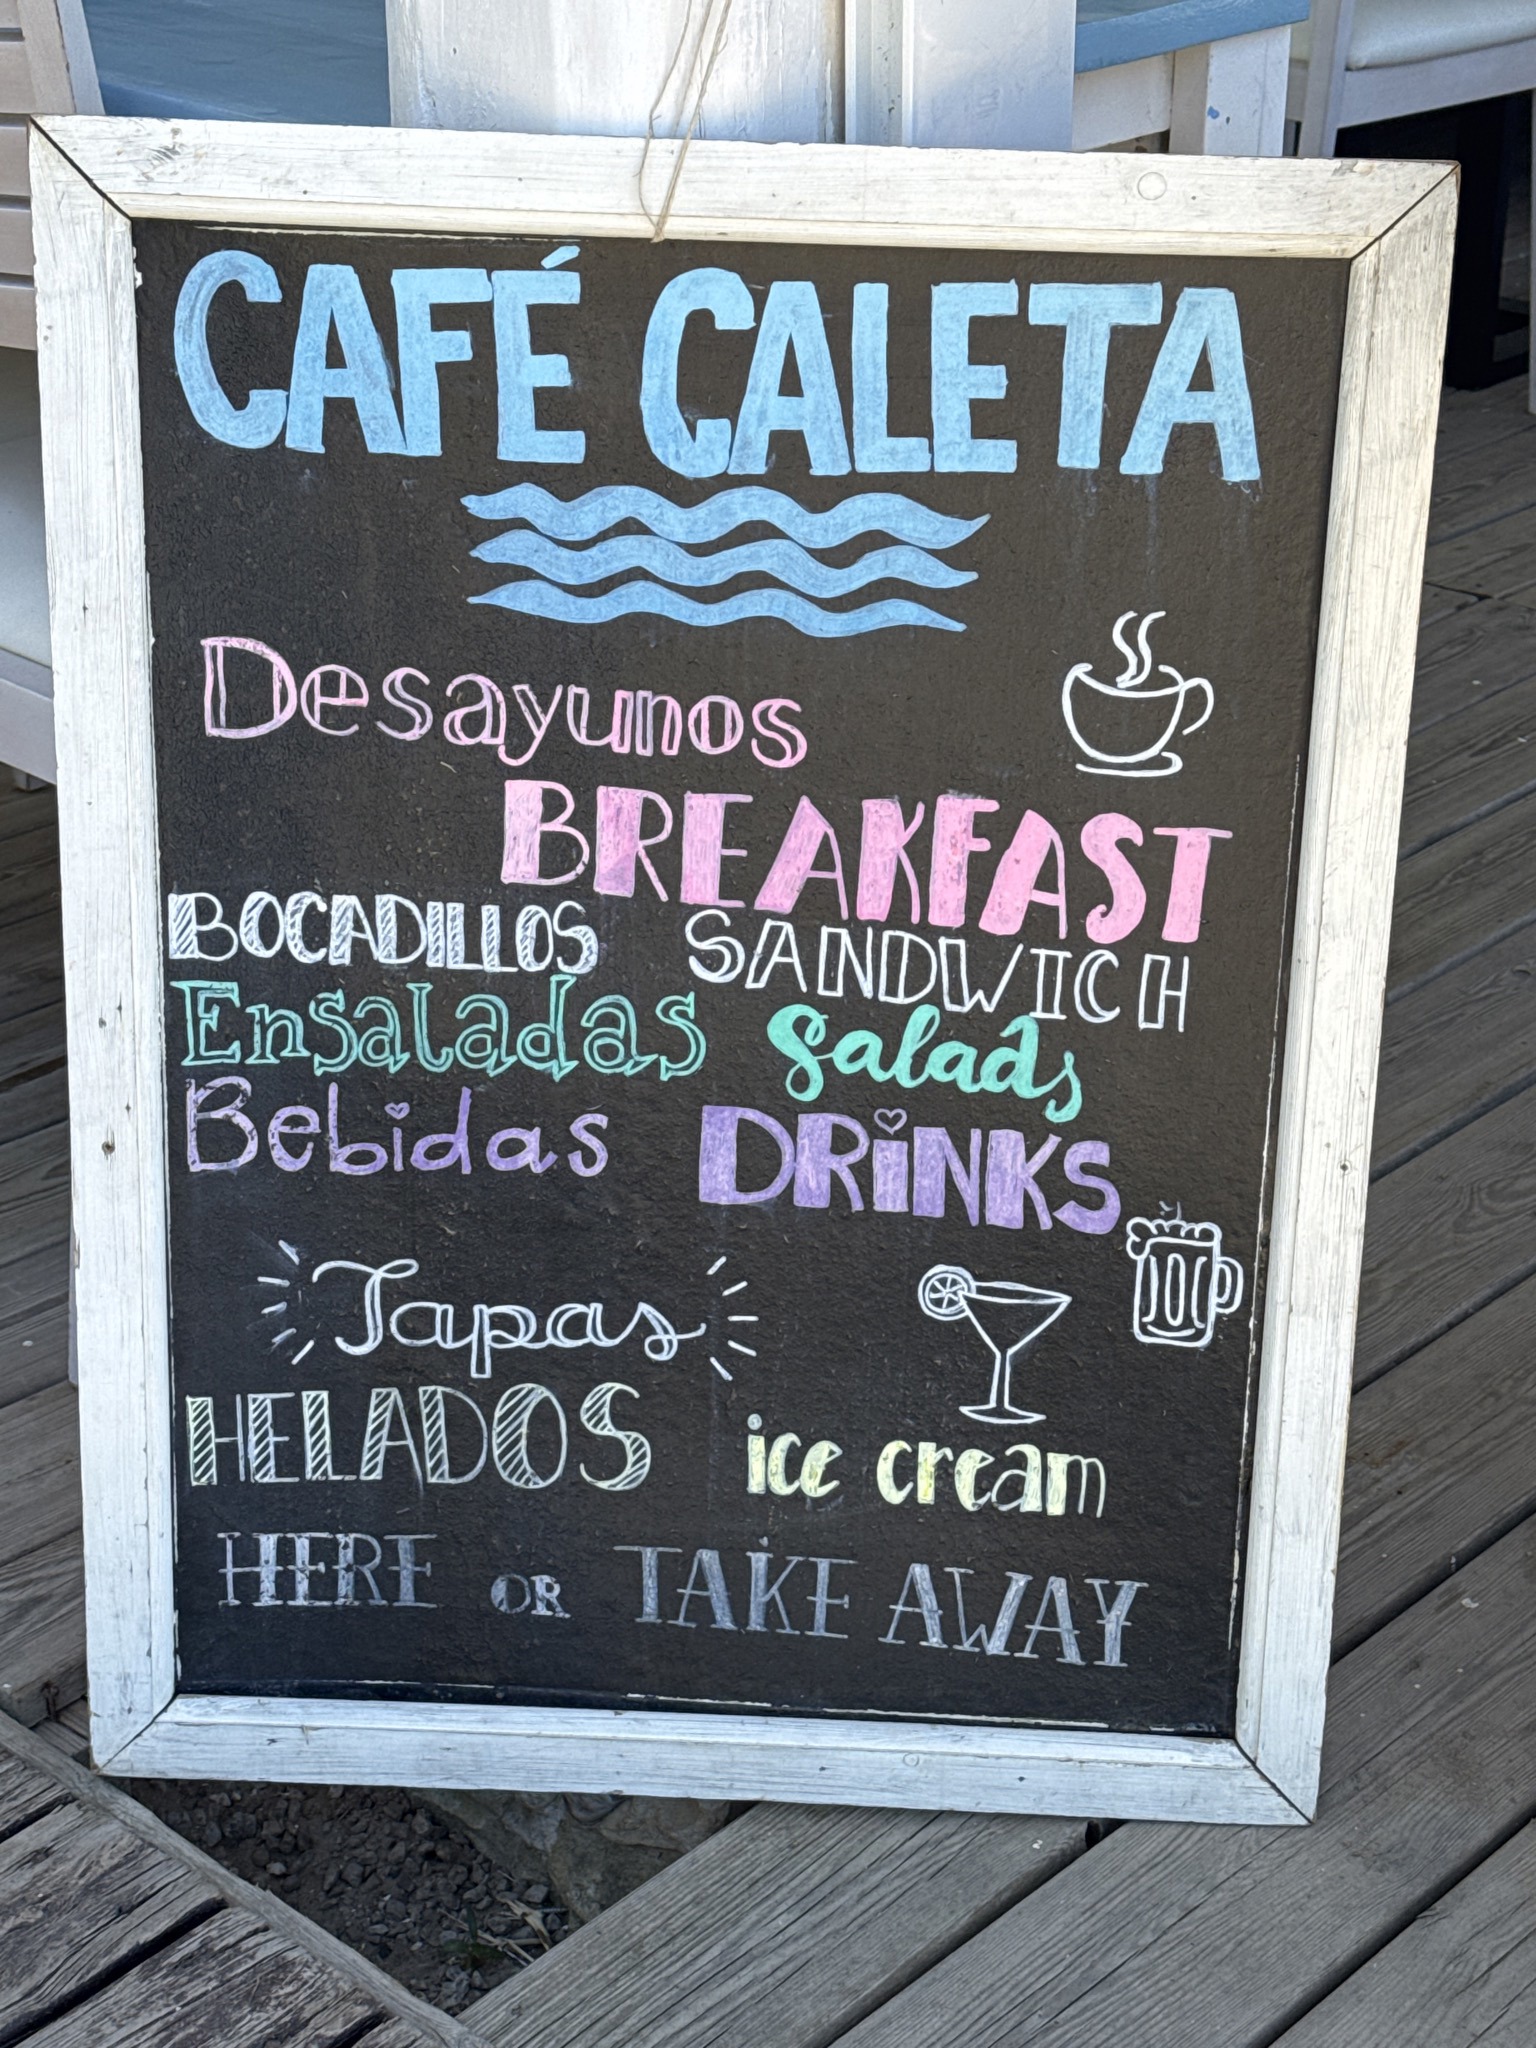 CAFÉ CALETA
Desayunos
BREAKFAST
BOCADILLOS SANDWICH
Ensaladas Salads
Bebidas DRiNKS
Tapas
HELADOS ice cream
HERE OR TAKE AWAY